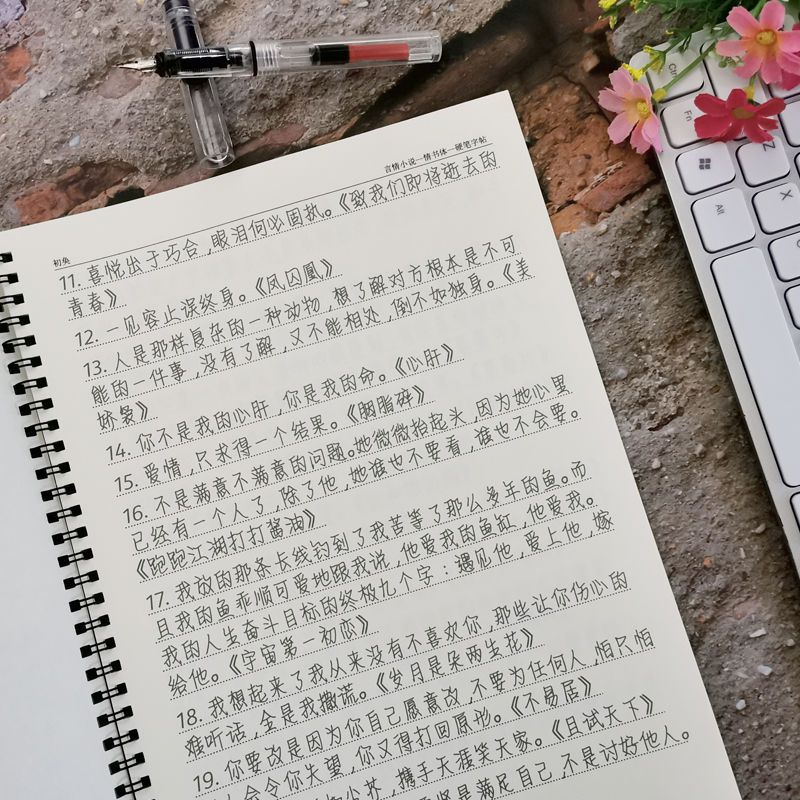 言情小说—情书体—硬笔字帖
初奂
11. 喜悦出于巧合,眼泪何必固执。《致我们即将逝去的
青春》
12. 一见容止误终身。《凤囚凰》
13. 人是那样复杂的一种动物,想了解对方根本是不可
能的一件事,没有了解,又不能相处,倒不如独身。《美
娇袅》
14. 你不是我的心肝,你是我的命。《心肝》
15. 爱情,只求得一个结果。《胭脂碎》
16. 不是满意不满意的问题。她微微抬起头,因为她心里
已经有一个人了,除了他,她谁也不要看,谁也不会要。
《跑跑江湖打打酱油》
17. 我放的那条长线钓到了我苦等了那么多年的鱼。而
且我的鱼乖顺可爱地跟我说,他爱我的鱼缸,他爱我。
我的人生奋斗目标的终极九个字:遇见他,爱上他,嫁
给他。《宇宙第一初恋》
18. 我想起来了我从来没有不喜欢你,那些让你伤心的
难听话,全是我撒谎。《岁月是朵两生花》
19. 你要改是因为你自己愿意改,不要为任何人,怕只怕
会令你失望,你又得打回原形。《不易居》
携手天涯笑天家。《且试天下》
是满足自己,不是讨好他人。
Ctrl
Fn
Alt
Z
X